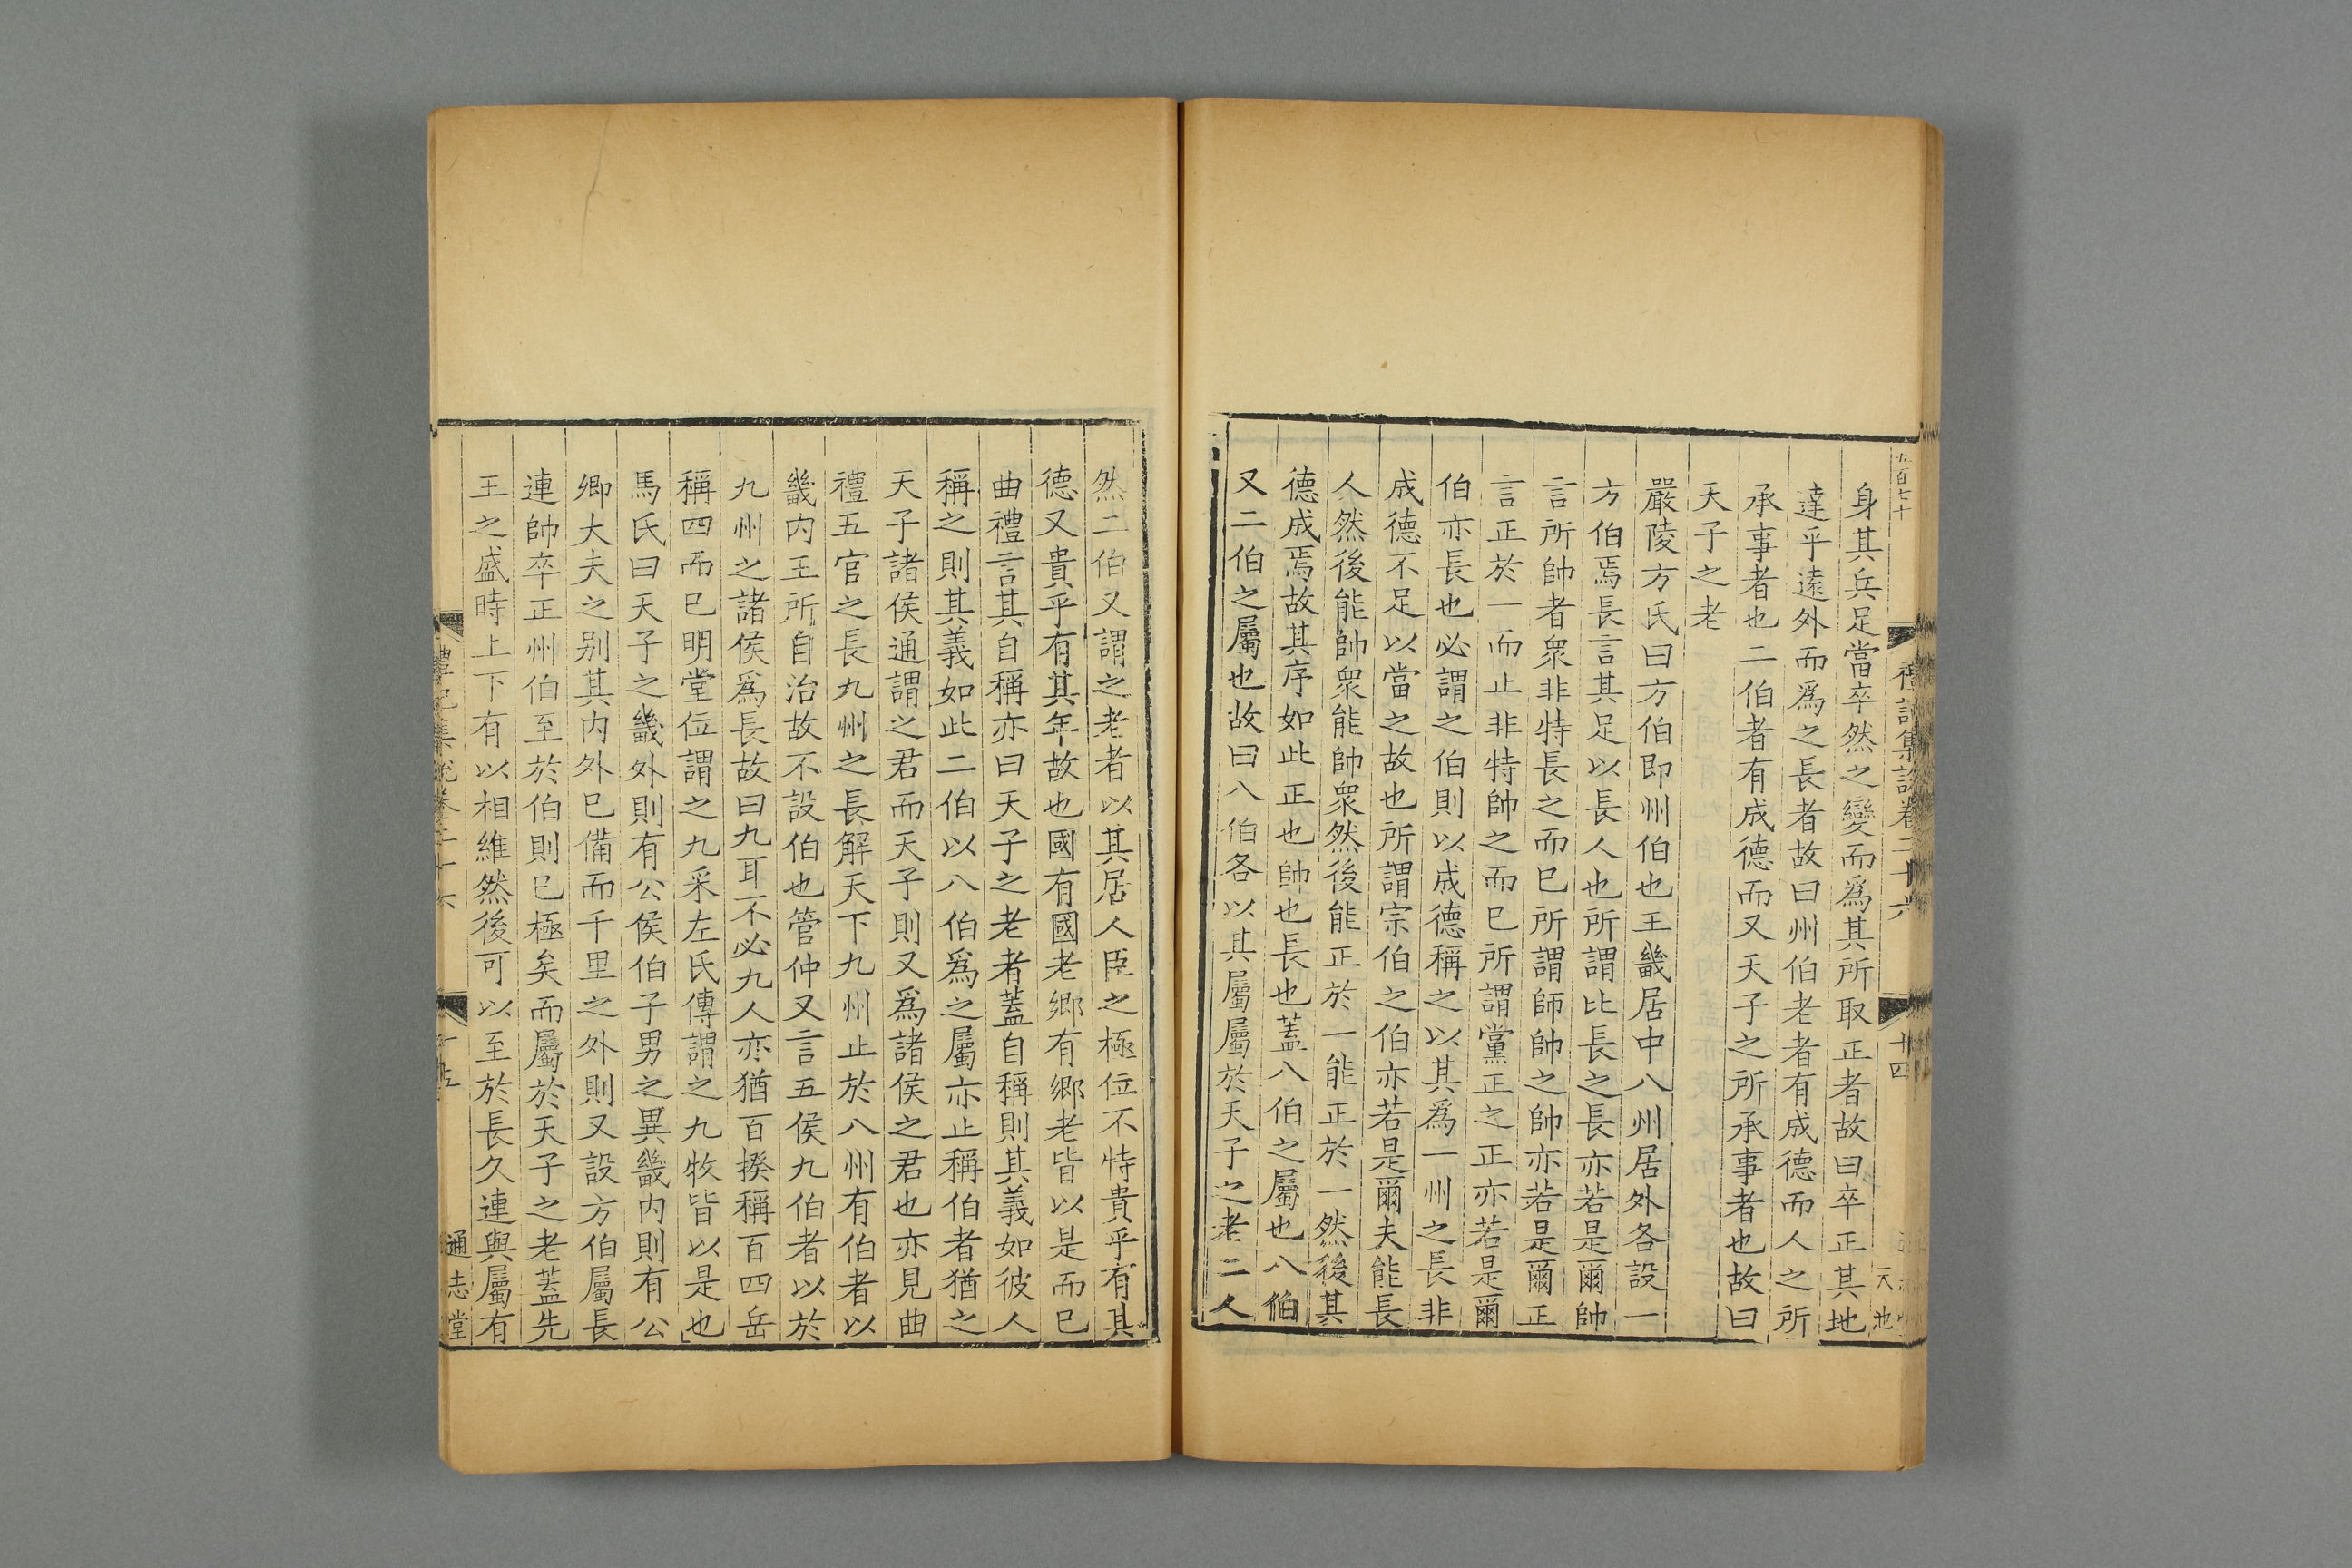 禮記集說卷二十六
十四
天池
身其兵足當卒然之變而爲其所取正者故曰卒正其地
達乎遠外而爲之長者故曰州伯老者有成德而人之所
承事者也二伯者有成德而又天子之所承事者也故曰
天子之老
嚴陵方氏曰方伯即州伯也王畿居中八州居外各設一
方伯焉長言其足以長人也所謂比長之長亦若是爾帥
言所帥者衆非特長之而已所謂師帥之帥亦若是爾正
言正於一而止非特帥之而已所謂黨正之正亦若是爾
伯亦長也必謂之伯則以成德稱之以其爲一州之長非
成德不足以當之故也所謂宗伯之伯亦若是爾夫能長
人然後能帥衆能帥衆然後能正於一能正於一然後其
德成焉故其序如此正也帥也長也蓋八伯之屬也八伯
又二伯之屬也故曰八伯各以其屬屬於天子之老二人
然二伯又謂之老者以其居人臣之極位不恃貴乎有其
德又貴乎有其年故也國有國老鄉有鄉老皆以是而已
曲禮言其自稱亦曰天子之老者蓋自稱則其義如彼人
稱之則其義如此二伯以八伯爲之屬亦止稱伯者猶之
天子諸侯通謂之君而天子則又爲諸侯之君也亦見曲
禮五官之長九州之長解天下九州止於八州有伯者以
畿内王所自治故不設伯也管仲又言五侯九伯者以於
九州之諸侯爲長故曰九耳不必九人亦猶百揆稱百四岳
稱四而已明堂位謂之九采左氏傳謂之九牧皆以是也
馬氏曰天子之畿外則有公侯伯子男之異畿内則有公
卿大夫之别其内外已備而千里之外則又設方伯屬長
連帥卒正州伯至於伯則已極矣而屬於天子之老蓋先
王之盛時上下有以相維然後可以至於長久連與屬有
禮記集說卷二十六
十五
通志堂